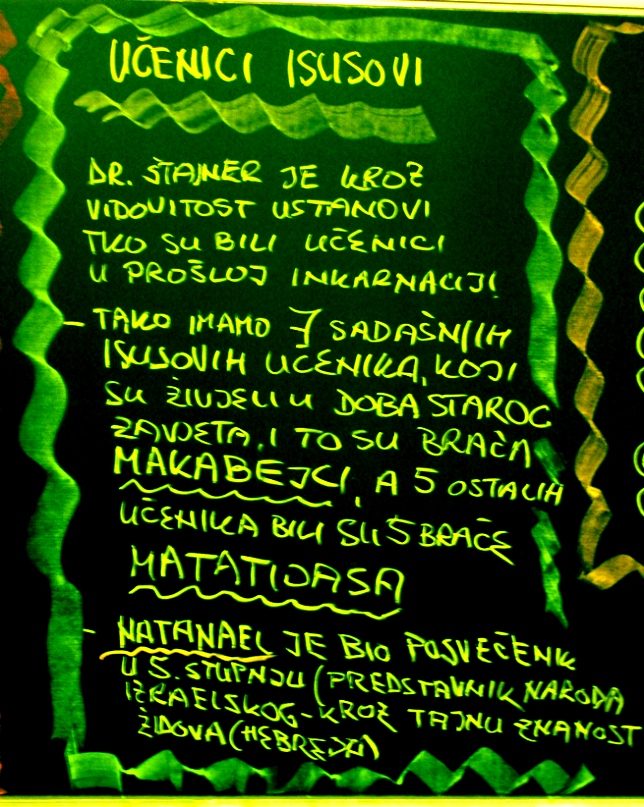 UČENICI ISUSOVI
DR. ŠTAJNER JE KROZ
VIDOVITOST USTANOVI
TKO SU BILI UČENICI
U PROŠLOJ INKARNACIJI
- TAKO IMAMO 7 SADAŠNJIH
ISUSOVIH UČENIKA, KOJI
SU ŽIVJELI U DOBA STAROG
ZAVJETA, I TO SU BRAĆA
MAKABEJCI, A 5 OSTALIH
UČENIKA BILI SU 5 BRAĆE
MATATIJASA
- NATANAEL JE BIO POSVEĆENIK
U 5. STUPNJU (PREDSTAVNIK NARODA
IZRAELSKOG - KROZ TAJNU ZNANOST
ŽIDOVA (HEBREJA)